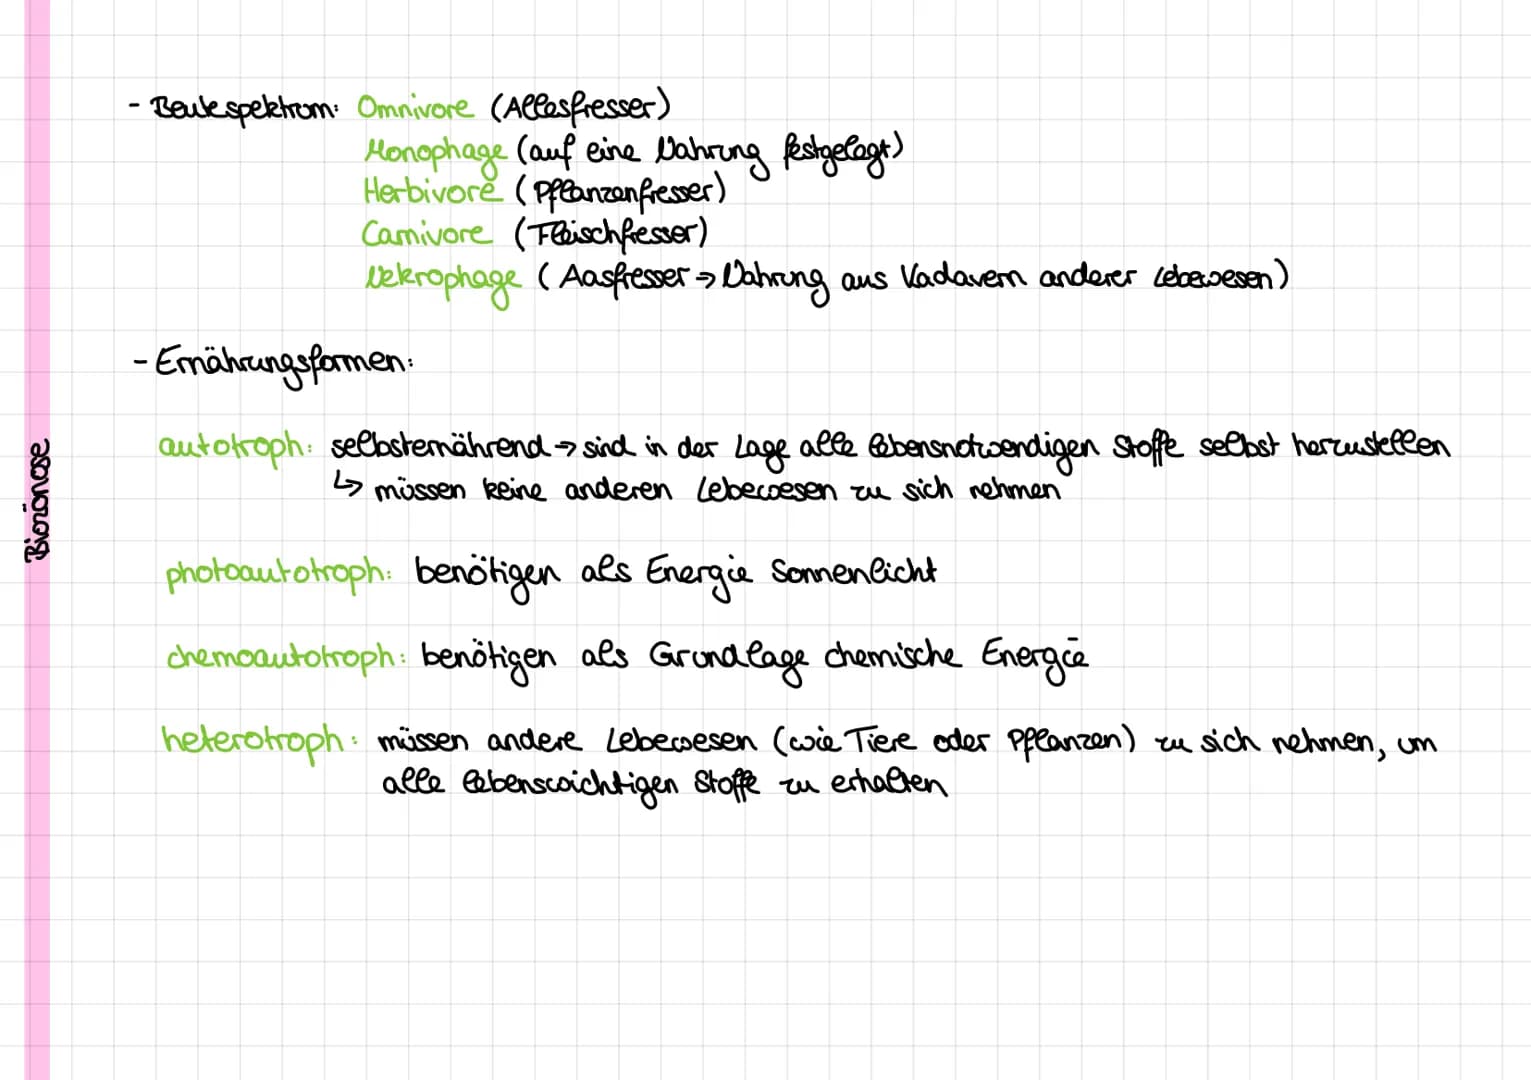 - Beutespektrum: Omnivore (Allesfresser)
Monophage (auf eine Nahrung festgelegt)
Herbivore (Pflanzenfresser)
Carnivore (Fleischfresser)
Nekrophage (Aasfresser → Nahrung aus Kadavern anderer Lebewesen)
- Ernährungsformen:
autotroph: selbsternährend → sind in der Lage alle lebensnotwendigen Stoffe selbst herzustellen
↳ müssen keine anderen Lebewesen zu sich nehmen
photoautotroph: benötigen als Energie Sonnenlicht
chemoautotroph: benötigen als Grundlage chemische Energie
heterotroph: müssen andere Lebewesen (wie Tiere oder Pflanzen) zu sich nehmen, um
alle lebenswichtigen Stoffe zu erhalten
Biozönose